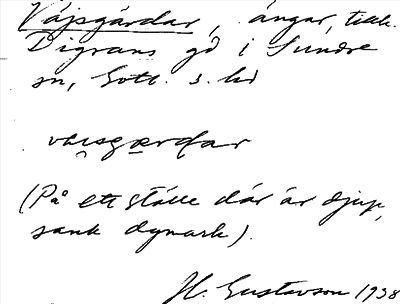 Väjsgärdar, ängar, tillh.
Digrans gd i Sundre
sn, Gotl. s. hd
väisgærdar
(På ett ställe där är djup,
sank dymark).
H. Gustavson 1938